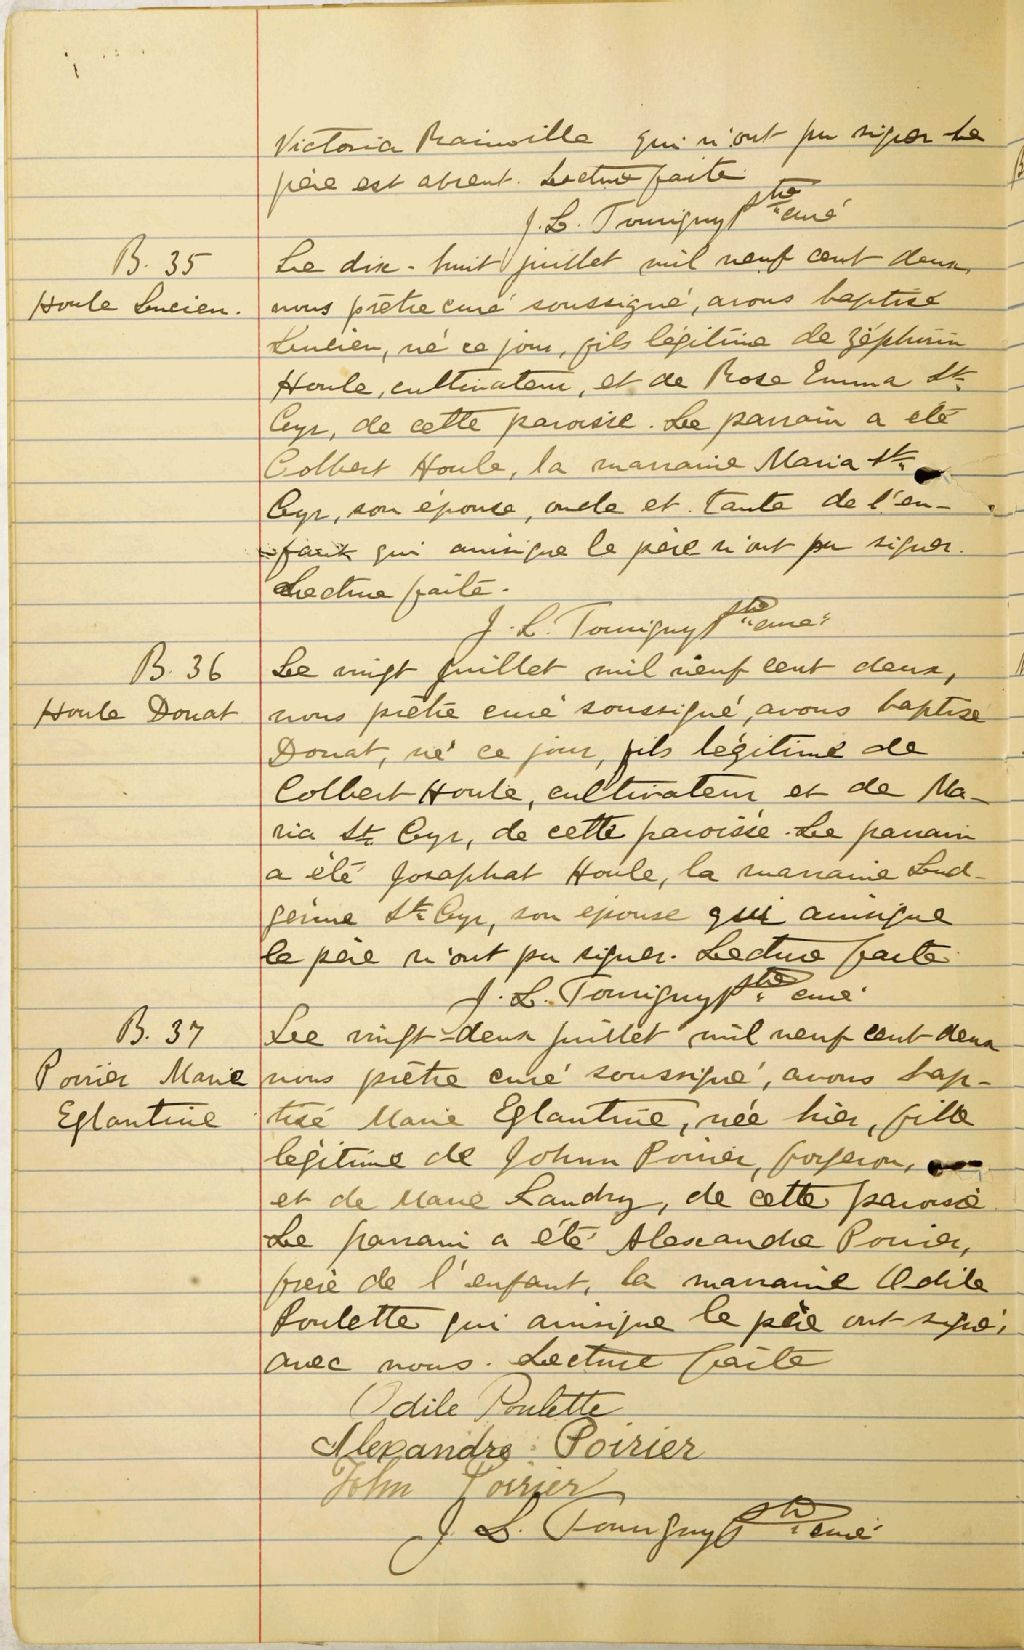 Victoria Rainville qui n'ont pu signer Le
père est absent. Lecture faite
J. L. Tourigny ptre curé
B. 35
Houle Lucien.
Le dix-huit juillet mil neuf cent deux,
nous prêtre curé soussigné, avons baptisé
Lucien, né ce jour, fils légitime de Zéphirin
Houle, cultivateur, et de Rose Emma St.
Cyr, de cette paroisse. Le parrain a été
Colbert Houle, la marraine Maria St.
Cyr, son épouse, oncle et tante de l'en-
-fant qui ainsique le père n'ont pu signer.
Lecture faite.
J. L. Tourigny ptre curé
B. 36
Houle Donat
Le vingt juillet mil neuf cent deux,
nous prêtre curé soussigné, avons baptisé
Donat, né ce jour, fils légitime de
Colbert Houle, cultivateur et de Ma-
ria St. Cyr, de cette paroisse. Le parrain
a été Josaphat Houle, la marraine Lud-
gérine St. Cyr, son épouse qui ainsique
le père n'ont pu signer. Lecture faite
J. L. Tourigny ptre curé
B. 37
Poirier Marie
Eglantine
Le vingt-deux juillet mil neuf cent deux
nous prêtre curé soussigné, avons bap-
tisé Marie Eglantine, née hier, fille
légitime de Johnn Poirier, forgeron,
et de Marie Landry, de cette paroisse
Le parrain a été Alexandre Poirier,
frère de l'enfant, la marraine Odile
Poulette qui ainsique le père ont signé
avec nous. Lecture faite
Odile Poulette
Alexandre Poirier
John Poirier
J. L. Tourigny ptre curé